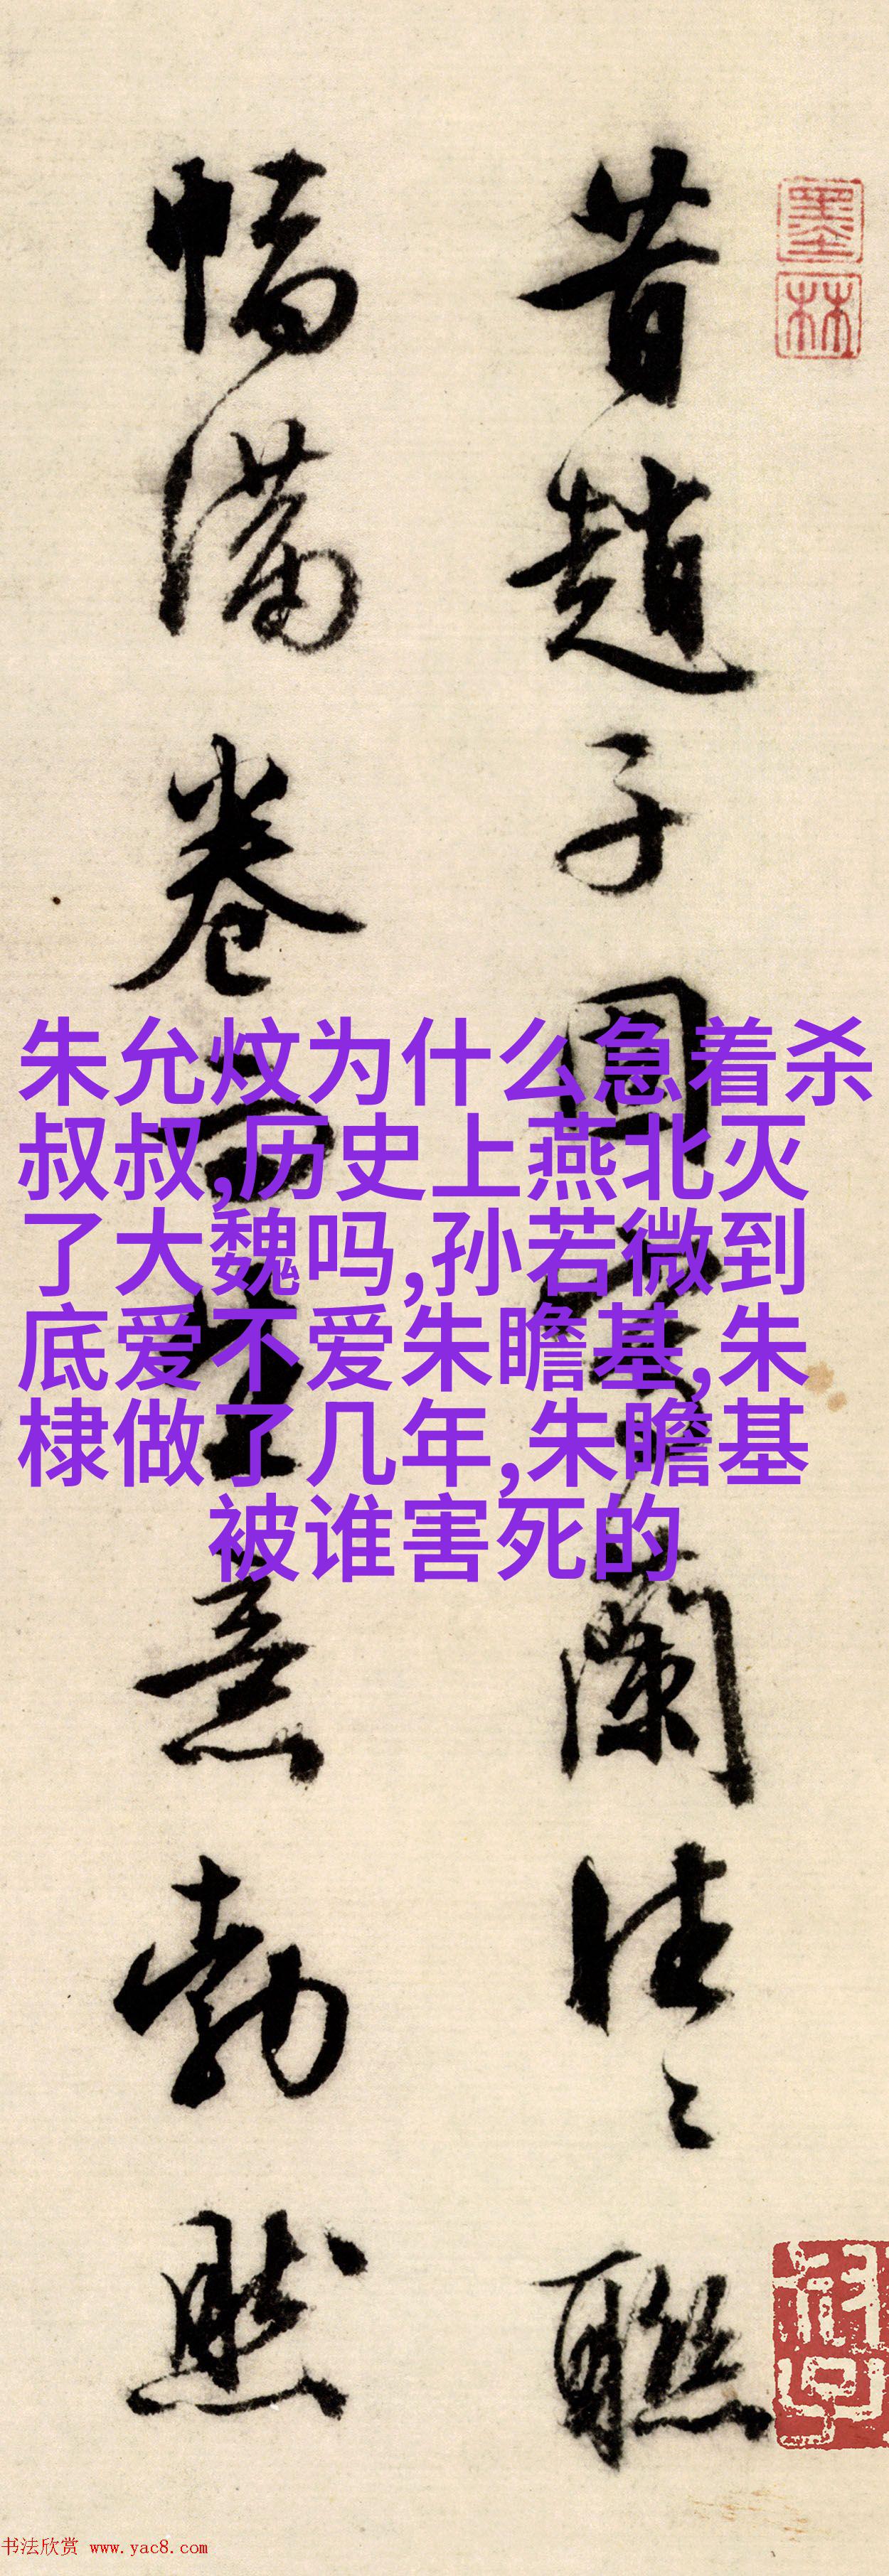 昔趙子固寫蘭往往聯
幅滿卷而生意勃然
墨林
朱允炆为什么急着杀
叔叔,历史上燕北灭
了大魏吗,孙若微到
底爱不爱朱瞻基,朱
棣做了几年,朱瞻基
被谁害死的
书法欣赏 www.yac8.com